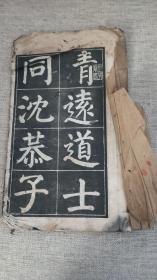 青遠道士
同沈恭子